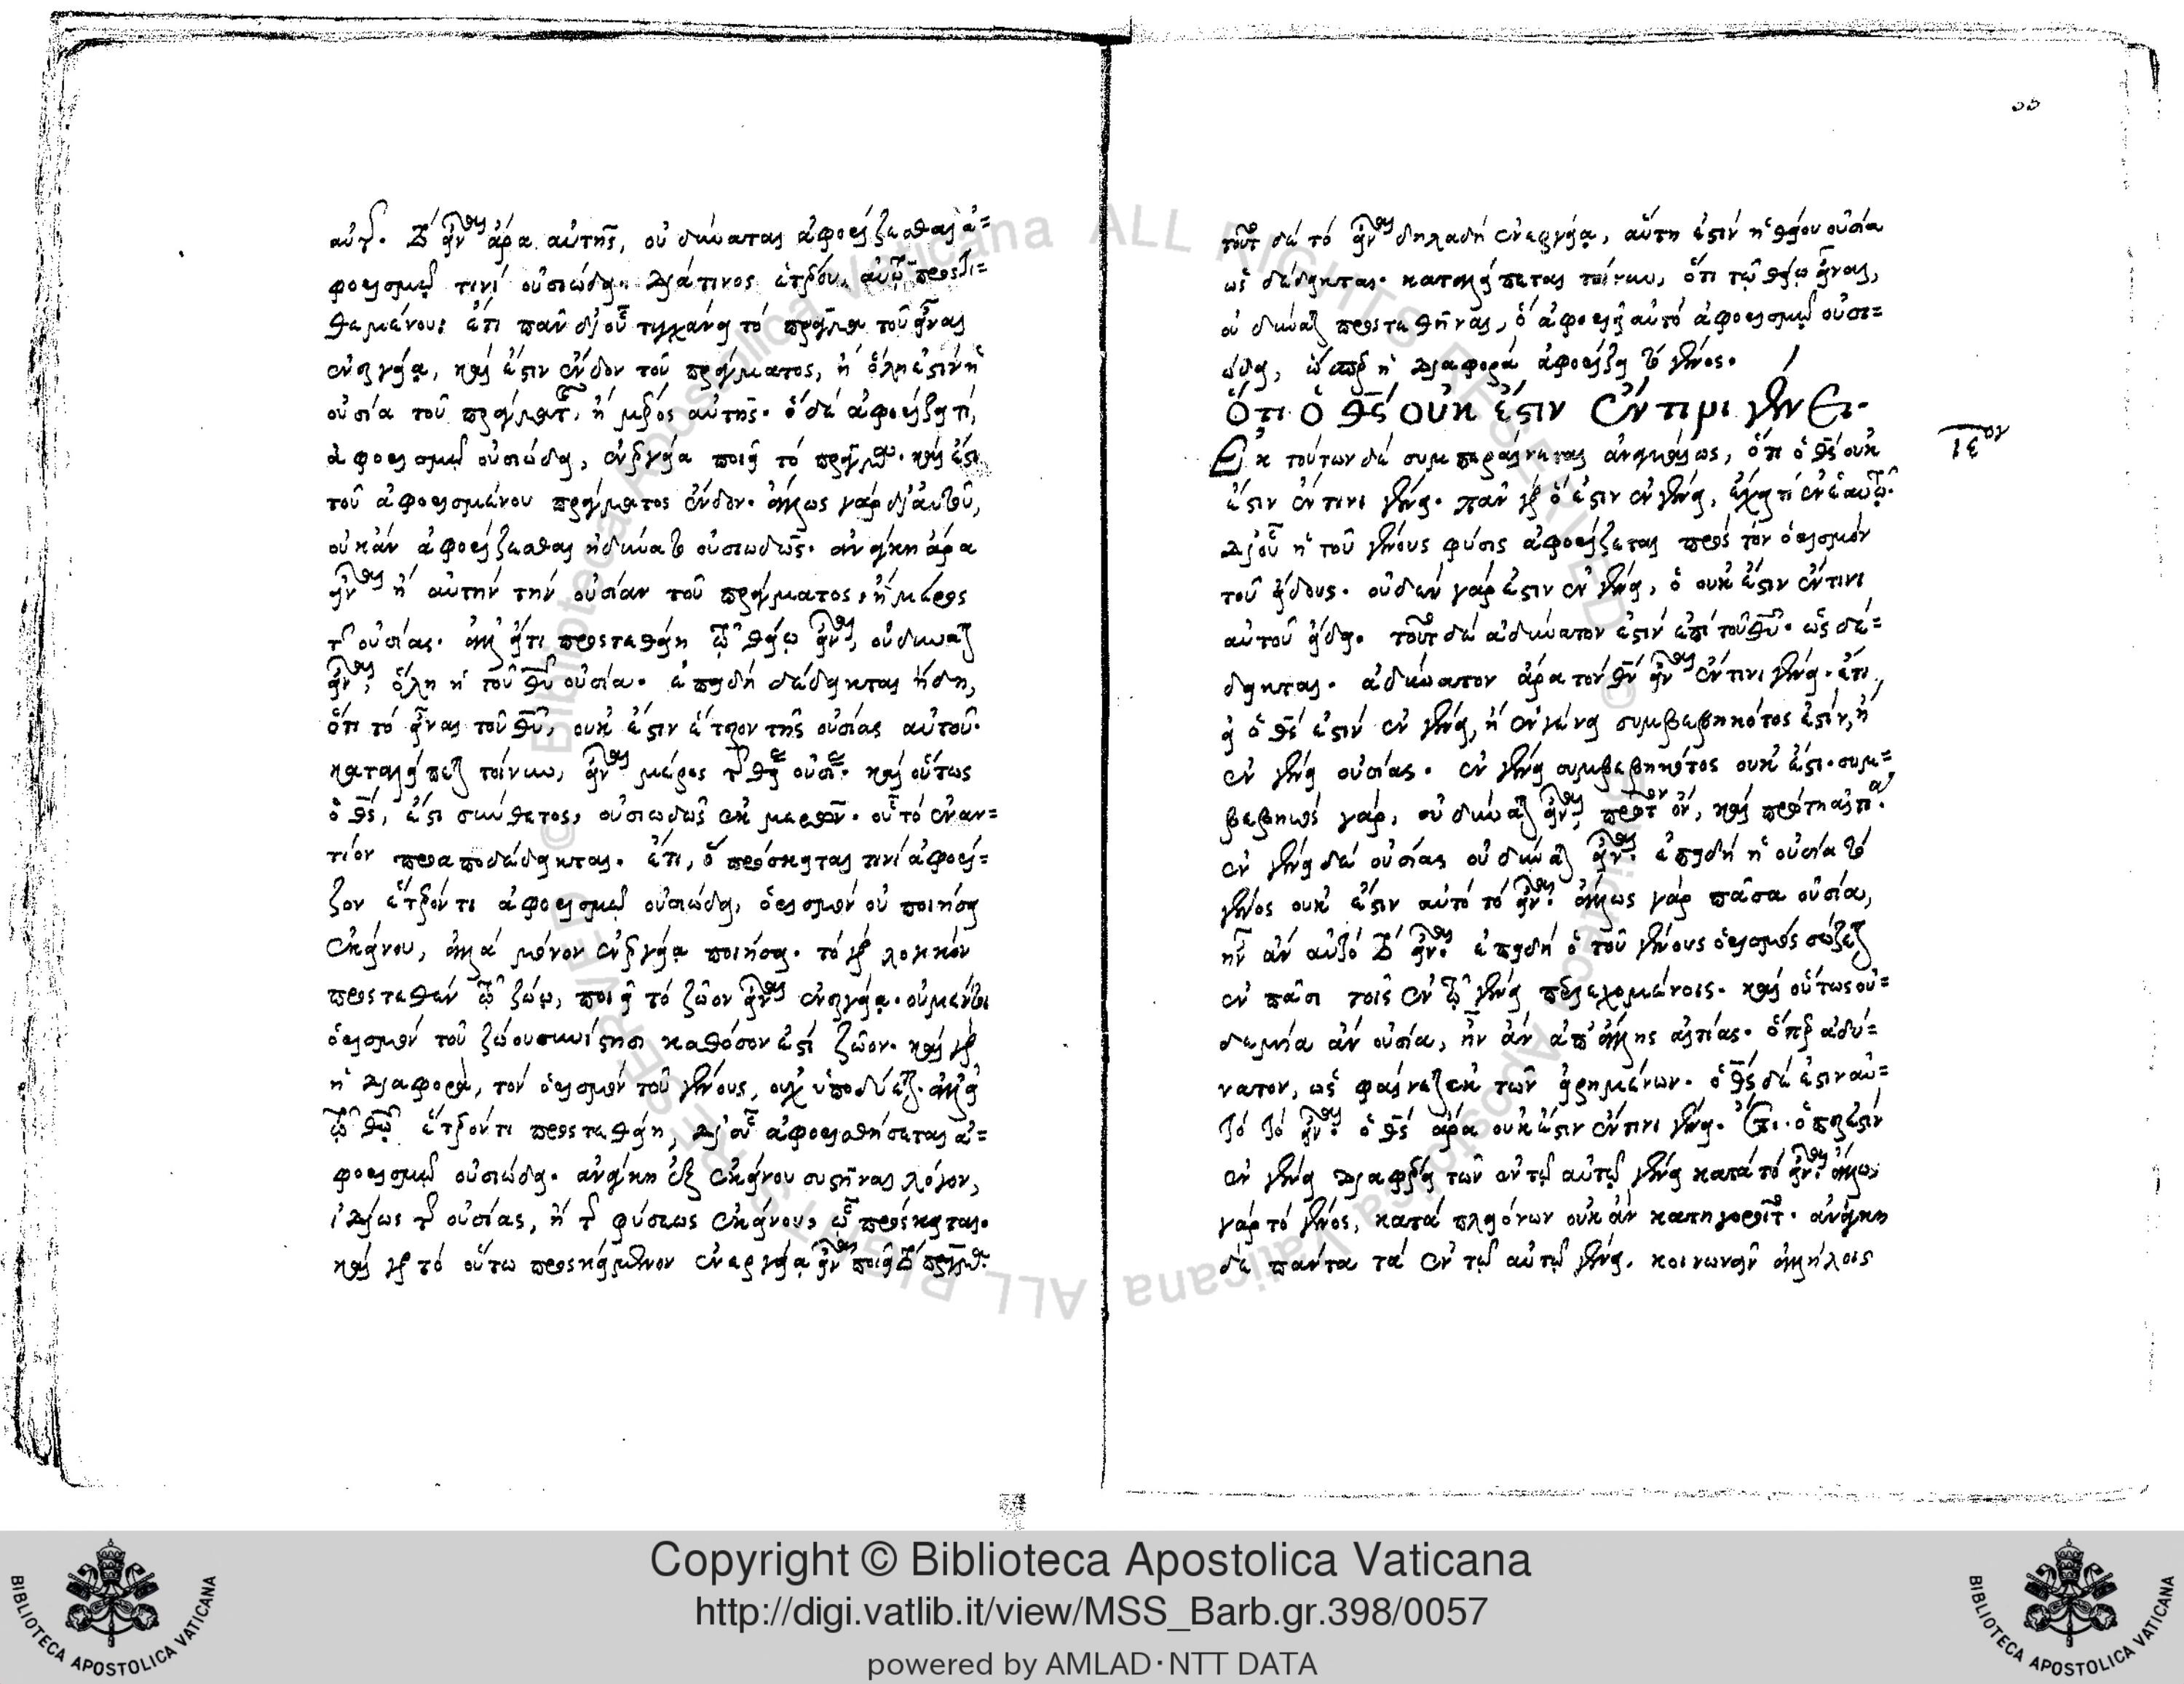 αὐτ. τὸ εἶναι ἄρα αὐτῆς, οὐ δύναται ἀφορίζεσθαι ἀ=
φορισμῷ τινὶ οὐσιώδει. διά τινος ἑτέρου, αὐτῷ προστι=
θεμένου: ἔτι πᾶν δι' οὗ τυγχάνει τὸ πρᾶγμα τοῦ εἶναι
ἐνεργείᾳ, καὶ ἔστιν ἔνδον τοῦ πράγματος, ἢ ὅλη ἐστὶν ἡ
οὐσία τοῦ πράγματος, ἢ μέρος αὐτῆς. ὃ δὲ ἀφορίζει τί,
ἀφορισμῷ οὐσιώδει, ἐνεργείᾳ ποιεῖ τὸ πρᾶγμα. καὶ ἔστι
τοῦ ἀφορισμένου πράγματος ἔνδον. ἄλλως γὰρ δι' αὐτοῦ,
οὐκ ἂν ἀφορίζεσθαι ἠδύνατο οὐσιωδῶς. ἀνάγκη ἄρα
εἶναι ἢ αὐτὴν τὴν οὐσίαν τοῦ πράγματος, ἢ μέρος
τῆς οὐσίας. ἀλλ' εἴ τι προστεθείη τῷ θείῳ εἶναι, οὐ δύναται
εἶναι, ὅλη ἡ τοῦ θυ οὐσία. ἐπειδὴ δέδεικται ἤδη,
ὅτι τὸ εἶναι τοῦ θυ, οὐκ ἔστιν ἕτερον τῆς οὐσίας αὐτοῦ.
καταλείπεται τοίνυν, εἶναι μέρος τῆς θείας οὐσίας. καὶ οὕτως
ὁ θς, ἔσται σύνθετος, οὐσιωδῶς ἐκ μερῶν. οὗ τὸ ἐναν=
τίον προαποδέδεικται. ἔτι, ὃ πρόσκειται τινὶ ἀφορί=
ζον ἕτερόν τι ἀφορισμῷ οὐσιώδει, ὁρισμὸν οὐ ποιήσει
ἐκείνου, ἀλλὰ μόνον ἐνεργείᾳ ποιήσει. τὸ γὰρ λογικὸν
προστεθὲν τῷ ζώῳ, ποιεῖ τὸ ζῶον εἶναι ἐνεργείᾳ. οὐ μέντοι
ὁρισμὸν τοῦ ζώου συνίστησι καθόσον ἐστὶ ζῶον. καὶ γὰρ
ἡ διαφορὰ, τὸν ὁρισμὸν τοῦ γένους, οὐχ ὑποδύεται. ἀλλ' εἰ
τῷ θω ἕτερόν τι προστεθείη, δι' οὗ ἀφορισθήσεται ἀ=
φορισμῷ οὐσιώδει. ἀνάγκη ἐξ ἐκείνου συστῆναι λόγον,
ἰδίως τῆς οὐσίας, ἢ τῆς φύσεως ἐκείνου, ᾧ πρόσκειται.
καὶ γὰρ τὸ οὕτω προσκείμενον ἐνεργείᾳ εἶναι ποιεῖ τὸ πρᾶγμα.
τοῦτο δὲ τὸ εἶναι δηλαδὴ ἐνεργείᾳ, αὕτη ἐστὶν ἡ θείου οὐσία
ὡς δέδεικται. καταλείπεται τοίνυν, ὅτι τῷ θείῳ εἶναι,
οὐ δύναται προστεθῆναι, ὃ ἀφορίζει αὐτὸ ἀφορισμῷ οὐσι=
ώδει, ὥσπερ ἡ διαφορὰ ἀφορίζει τὸ γένος.
Ὅτι ὁ θς οὐκ ἔστιν ἔν τινι γένει.
ιε ον
Ἐκ τούτων δὲ συμπεραίνεται ἀναγκαίως, ὅτι ὁ θς οὐκ
ἔστιν ἔν τινι γένει. πᾶν γὰρ ὅ ἐστιν ἐν γένει, ἔχει τι ἐν ἑαυτῷ.
δι' οὗ ἡ τοῦ γένους φύσις ἀφορίζεται πρὸς τὸν ὁρισμὸν
τοῦ εἴδους. οὐδὲν γάρ ἐστιν ἐν γένει, ὃ οὐκ ἔστιν ἔν τινι
αὐτοῦ εἴδει. τοῦτο δὲ ἀδύνατον ἐστὶν ἐπὶ τοῦ θυ. ὡς δέ=
δεικται. ἀδύνατον ἄρα τὸν θν εἶναι ἔν τινι γένει. ἔτι,
εἰ ὁ θς ἐστὶν ἐν γένει, ἢ ἐν γένει συμβεβηκότος ἐστὶν, ἢ
ἐν γένει οὐσίας. ἐν γένει συμβεβηκότος οὐκ ἔστι. συμ=
βεβηκὸς γὰρ, οὐ δύναται εἶναι, πρῶτον ὂν, καὶ πρώτη αἰτία.
ἐν γένει δὲ οὐσίας οὐ δύναται εἶναι. ἐπειδὴ ἡ οὐσία τὸ
γένος οὐκ ἔστιν αὐτὸ τὸ εἶναι. ἄλλως γὰρ πᾶσα οὐσία,
ἦν ἂν αὐτὸ τὸ εἶναι. ἐπειδὴ ὁ τοῦ γένους ὁρισμὸς σώζεται
ἐν πᾶσι τοῖς ἐν τῷ γένει περιεχομένοις. καὶ οὕτως οὐ=
δεμία ἂν οὐσία, ἦν ἂν ἀπ' ἄλλης αἰτίας. ὅπερ ἀδύ=
νατον, ὡς φαίνεται ἐκ τῶν εἰρημένων. ὁ θς δέ ἐστιν αὐ=
τὸ τὸ εἶναι. ὁ θς ἄρα οὐκ ἔστιν ἔν τινι γένει. Ἔτι. ὅπερ ἐστὶν
ἐν γένει διαφέρει τῶν ἐν τῷ αὐτῷ γένει κατὰ τὸ εἶναι. ἄλλως
γὰρ τὸ γένος, κατὰ πλειόνων οὐκ ἂν κατηγοροῖτο. ἀνάγκη
δὲ πάντα τὰ ἐν τῷ αὐτῷ γένει, κοινωνεῖν ἀλλήλοις
Copyright © Biblioteca Apostolica Vaticana
http://digi.vatlib.it/view/MSS_Barb.gr.398/0057
powered by AMLAD·NTT DATA